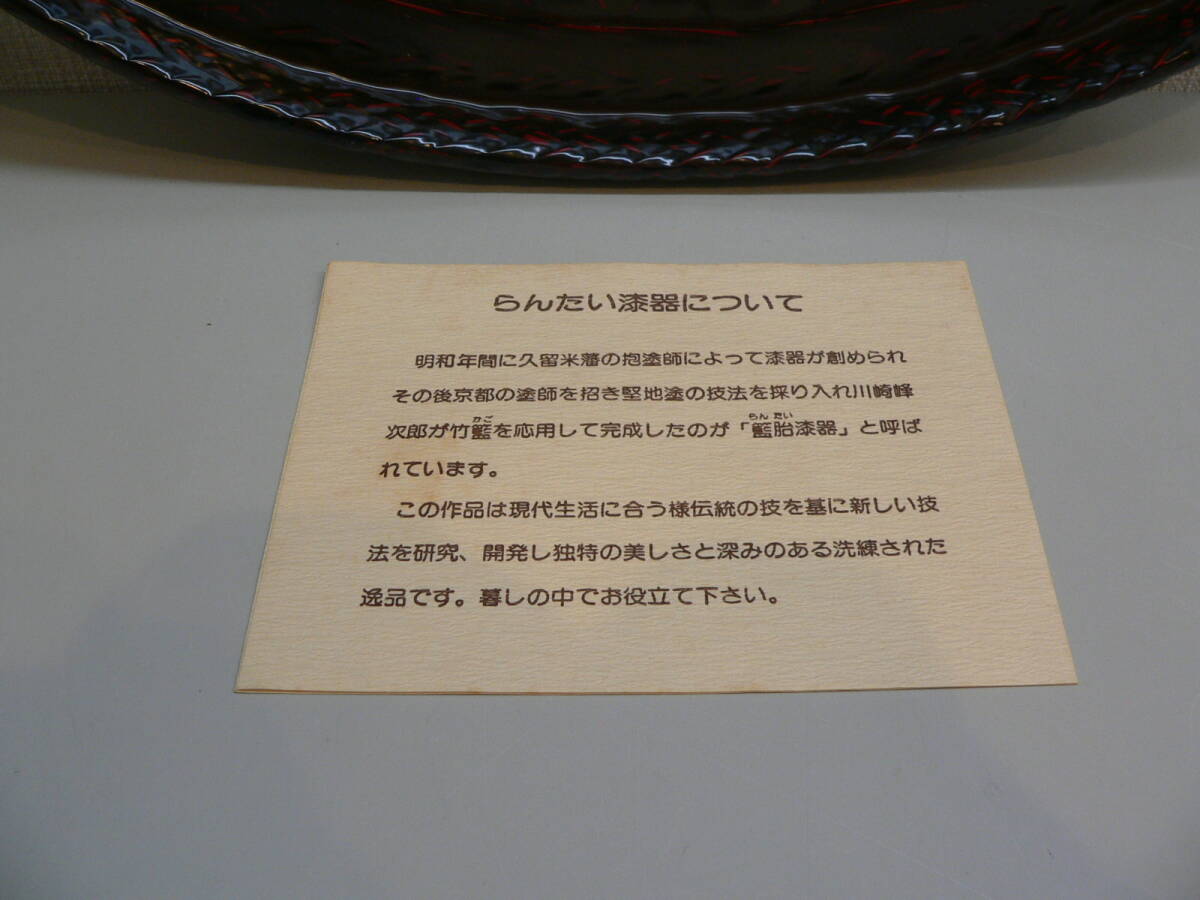 らんたい漆器について
明和年間に久留米藩の抱塗師によって漆器が創められ
その後京都の塗師を招き堅地塗の技法を採り入れ川崎峰
次郎が竹籃を応用して完成したのが「籃胎漆器」と呼ば
かご
らんたい
れています。
この作品は現代生活に合う様伝統の技を基に新しい技
法を研究、開発し独特の美しさと深みのある洗練された
逸品です。暮しの中でお役立て下さい。